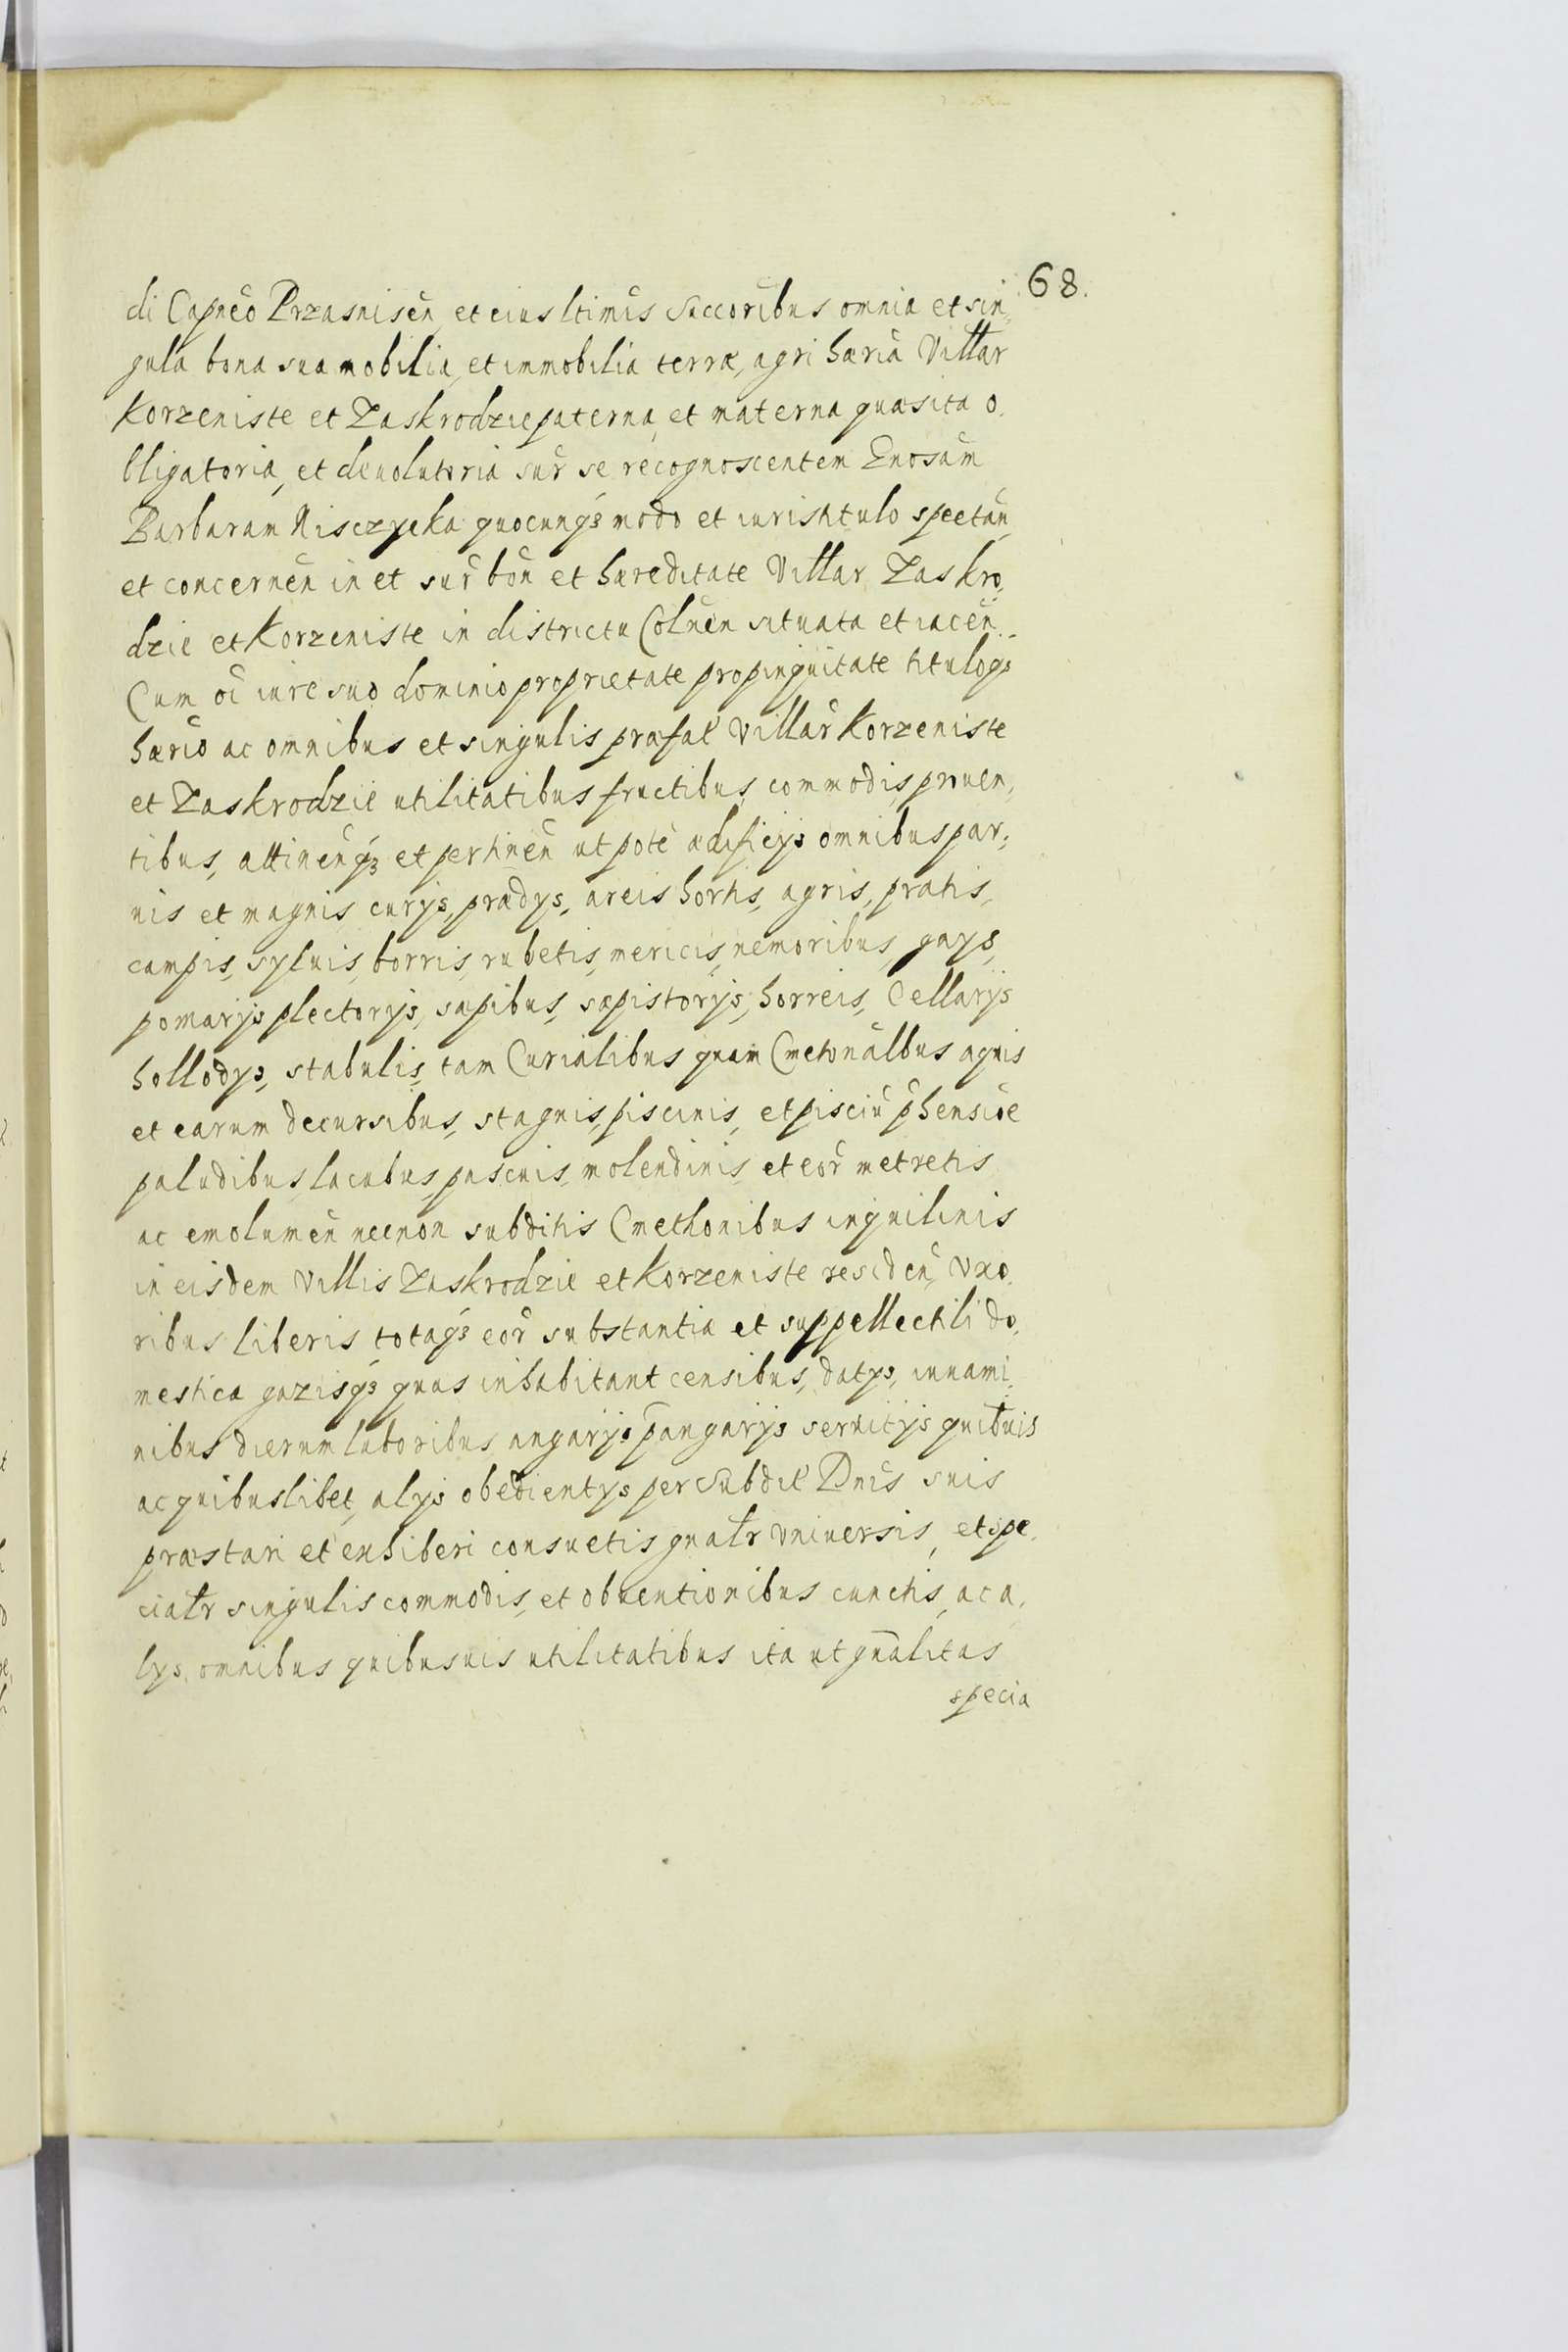 68.
di Capneo Przasnisen et eius ltimis succoribus omnia et sin,
gula bona sua mobilia, et immobilia terræ, agri hæria Villar
Korzeniste et Zaskrodzie paterna, et materna quæsita o,
bligatoria, et deuolutoria sur se recognoscentem Enosam
Barbaram Nisczycka quocunqз modo et iuris titulo spectan,
et concernen in et sur bon et hæreditate Villar Zaskro,
dzie et Korzeniste in districtu Colnen situata et iacen.
Cum oi iure suo dominio proprietate propinquitate tituloqз
hærio ac omnibus et singulis præfat Villar Korzeniste
et Zaskrodzie utilitatibus fructibus, commodis, prouen,
tibus, attinenqз et pertinen ut pote ædificijs omnibus par,
uis et magnis curijs, prædys, areis hortis, agris, pratis,
campis, syluis, borris, rubetis, mericis, nemoribus, gays,
pomarijs plectorijs, sæpibus, sæpistorijs, horreis, Cellarijs
hollodys, stabulis, tam Curialibus quam Cmetonalbus aquis
et earum decursibus, stagnis, piscinis, et pisciu phensioe
paludibus, lacubus, pascuis, molendinis, et eor metretis
ac emolumen necnon subditis Cmethonibus inquilinis
in eisdem Villis Zaskrodzie et Korzeniste residen, Uxo,
ribus liberis totaqз eor substantia et suppellectili do,
mestica gazisqз quas inhabitant censibus, datys, iuuami,
nibus dierum laboribus angarijs pangarijs seruitijs quibuis
ac quibuslibet, alys obedientys per Subdit Dnis suis
præstari et enhiberi consuetis gnalr vniuersis, et spe,
cialr singulis commodis, et obuentionibus cunctis, ac a,
lys, omnibus quibusuis utilitatibus ita ut gnalitas
specia